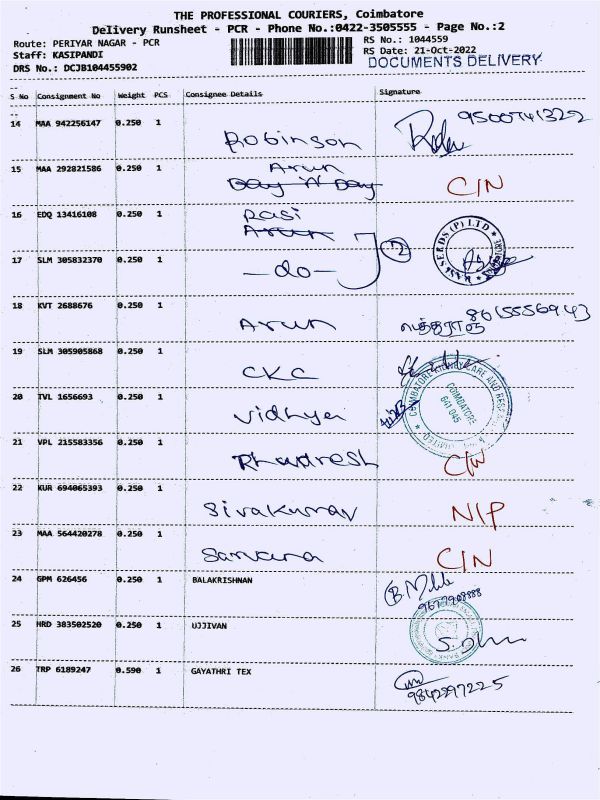 THE PROFESSIONAL COURIERS, Coimbatore
Delivery Runsheet - PCR - Phone No.:0422-3505555 - Page No.:2
Route: PERIYAR NAGAR - PCR
Staff: KASIPANDI
DRS No.: DCJB104455902
RS No.: 1044559
RS Date: 21-Oct-2022
DOCUMENTS DELIVERY
S No Consignment No Weight PCS Consignee Details Signature
14 MAA 942256147 0.250 1 Robinson 9500741322
15 MAA 292821586 0.250 1 Arun Day 'N' Day C/N
16 EDQ 13416108 0.250 1 Rasi Arun
17 SLM 305832370 0.250 1 -do- 2 SEEDS (P) LTD
18 KVT 2688676 0.250 1 Arun
19 SLM 305905868 0.250 1 CKC
20 TVL 1656693 0.250 1 Vidhya COIMBATORE 641 045
21 VPL 215583356 0.250 1 C/N
22 KUR 694065393 0.250 1 Sivakumar N/P
23 MAA 564420278 0.250 1 Sarvana C/N
24 GPM 626456 0.250 1 BALAKRISHNAN
25 HRD 383502520 0.250 1 UJJIVAN
26 TRP 6189247 0.590 1 GAYATHRI TEX 9842297225